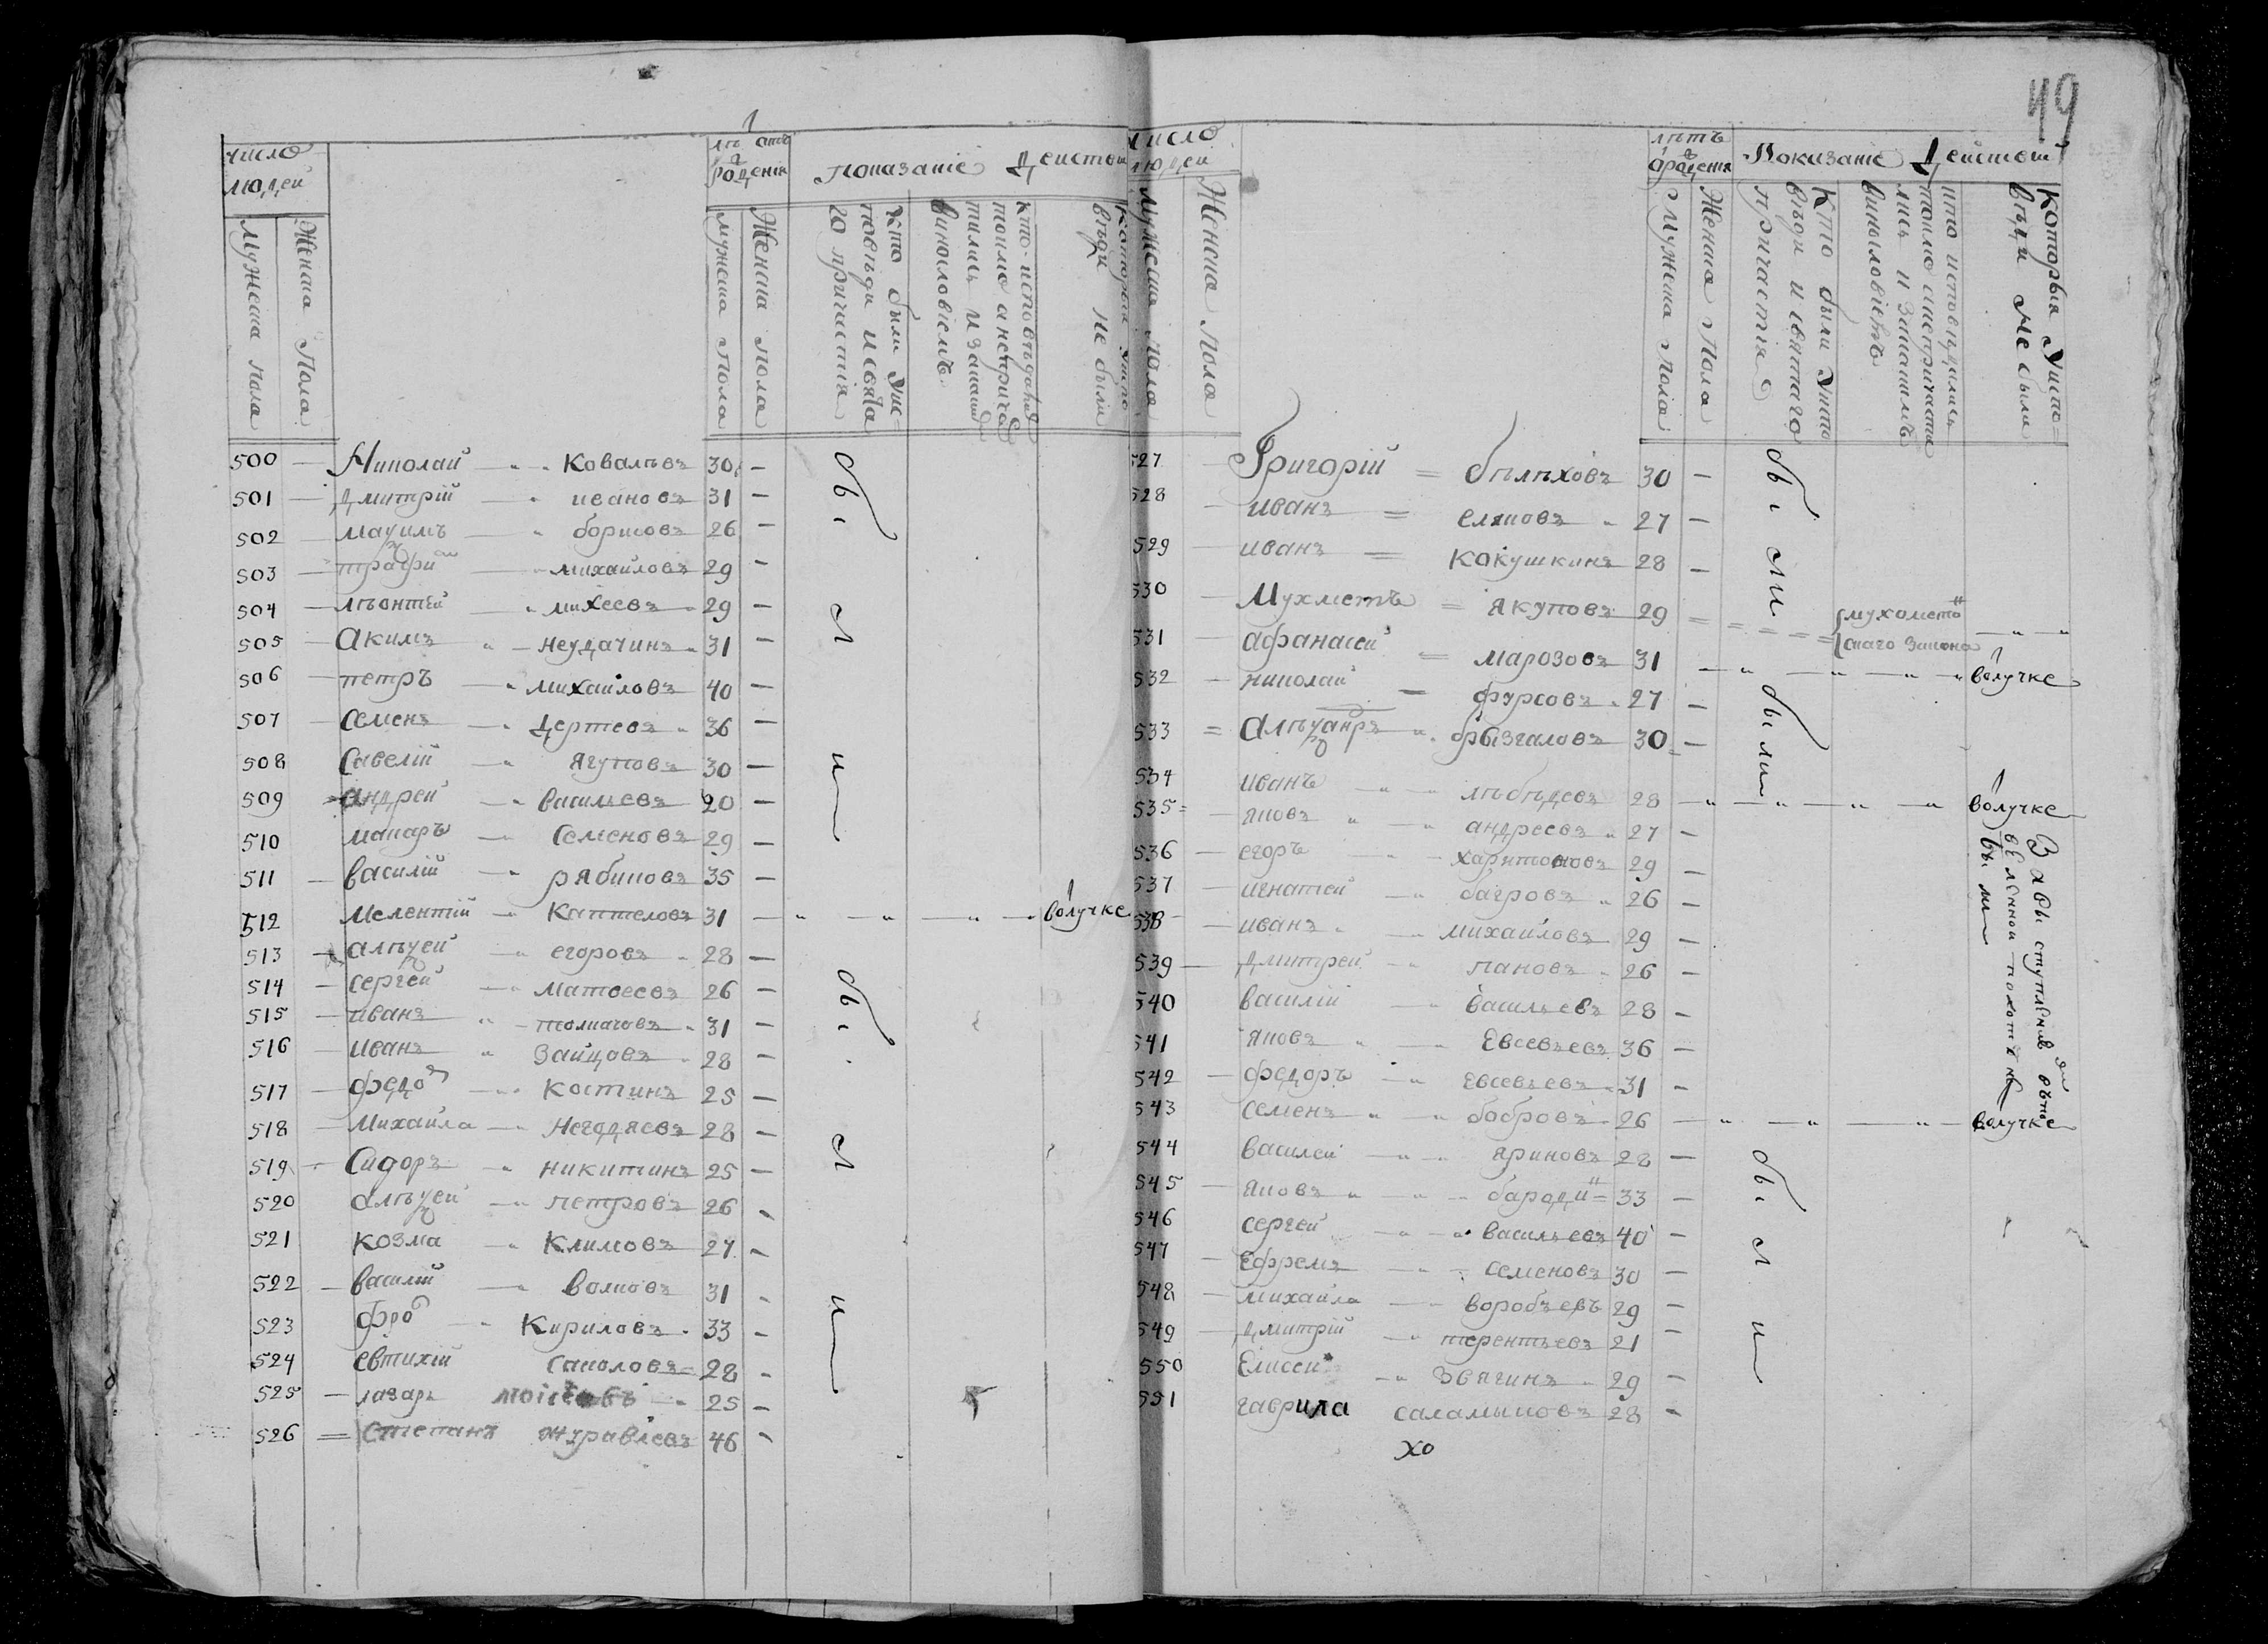 49
1
число людей
лѣ отъ рожденія
показаніе действи
мужеска пола
Женска Пола
мужеска пола
Женска пола
Кто были Уис=
повѣди и свята
го причастія
кто исповѣдались
токмо а не прича
тились и за каким
винословіемъ
которыя Уиспо
вѣди не были
500 — Николай — Ковалѣвъ 30 —
501 — Дмитрій — ивановъ 31 —
502 — Мадимъ — борисовъ 26 —
503 — трофи — михайловъ 29 —
504 — лѣонтей — михеевъ 29 —
505 — Акимъ — неудачинъ 31 —
506 — петръ — михайловъ 40 —
507 — Семенъ — Дертевъ 36 —
508 Савелій — Ягуповъ 30 —
509 — андрей — васильевъ 20 —
510 макаръ — Семеновъ 29 —
511 — василій — рябиковъ 35 —
512 Мелентій — Каптеловъ 31 — волучке
513 — алѣксей — егоровъ 28 —
514 — сергей — матвеевъ 26 —
515 — иванъ — толмачовъ 31 —
516 — иванъ — Зайцовъ 28 —
517 — федо — костинъ 25 —
518 — Михайла — Негодяевъ 28 —
519 — Сидоръ — никитинъ 25 —
520 алѣксей — петровъ 26 —
521 козма — Климовъ 27 —
522 — василій — волковъ 31 —
523 фро — Кириловъ 33 —
524 евтихій саколовъ 28 —
525 — лазарь 25 —
526 = Степанъ журавлевъ 46 —
бы
л
и
бы
л
и
число людей
лѣтъ отрожденія
Показаніе Действи
Мужеска пола
Женска Пола
Мужеска пола
Женска Пола
Кто были Уиспо
вѣди и святаго
причастія
кто исповѣдались
токмо а не причасти
лись и Закакимъ
винословіемъ
Которыя Уиспо=
вѣди не были
527 — Григорій = бѣлѣховъ 30 —
528 — иванъ = еляковъ 27 —
529 — иванъ = Кокушкинъ 28 —
530 — Мухметъ = якуповъ 29 = мухомето
скаго закона
531 — афанасей = марозовъ 31 — волучке
532 — николай — фурсовъ 27 —
533 = Алѣксанръ — брызгаловъ 30 —
534 иванъ — лѣбѣдевъ 28 — волучке
535 = яковъ — андреевъ 27 —
536 — егоръ — харитоновъ 29 —
537 — игнатей — багровъ 26 —
538 — иванъ — михайловъ 29 —
539 — Дмитрей — пановъ 26 —
540 василій — васильевъ 28 —
541 яковъ — Евсевьевъ 36 —
542 — федоръ — евсевьевъ 31 —
543 семенъ — бобровъ 26 — волучке
544 василей — яриковъ 28 —
545 — яковъ — бароди = 33 —
546 сергей — васильевъ 40 —
547 — Ефремъ — семеновъ 30 —
548 — михайла — воробьевъ 29 —
549 — Дмитрій — терентьевъ 21 —
550 Елисей — Звягинъ 29 —
551 гаврила саламыковъ 28 —
хо
бы
ли
были
бы
л
и